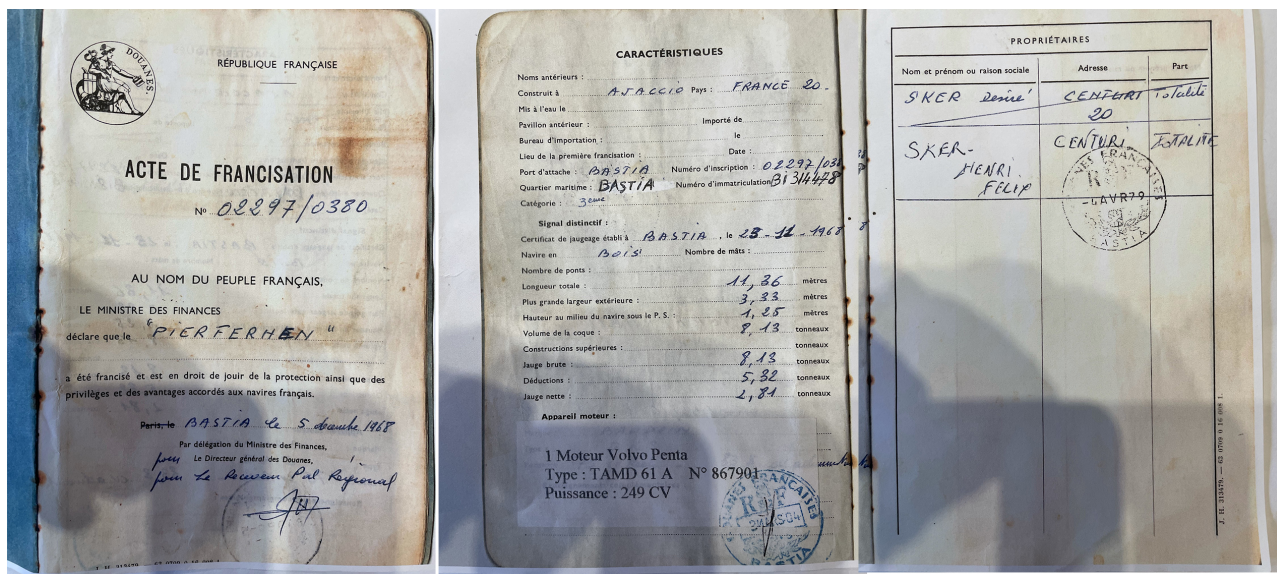 DOUANES
RÉPUBLIQUE FRANÇAISE
ACTE DE FRANCISATION
N° 02297/0380
AU NOM DU PEUPLE FRANÇAIS,
LE MINISTRE DES FINANCES
déclare que le "PIERFERHEN"
a été francisé et est en droit de jouir de la protection ainsi que des
privilèges et des avantages accordés aux navires français.
Paris, le BASTIA le 5 décembre 1968
Par délégation du Ministre des Finances,
pour Le Directeur général des Douanes,
pour Le Receveur Pal Régional
CARACTÉRISTIQUES
Noms antérieurs :
Construit à AJACCIO Pays : FRANCE 20.
Mis à l'eau le
Pavillon antérieur : Importé de
Bureau d'importation : le
Lieu de la première francisation : Date :
Port d'attache : BASTIA Numéro d'inscription : 02297/0380
Quartier maritime : BASTIA Numéro d'immatriculation
Catégorie : 3ème
Signal distinctif :
Certificat de jaugeage établi à BASTIA, le 23-11-1968
Navire en BOIS Nombre de mâts :
Nombre de ponts :
Longueur totale : 11,36 mètres
Plus grande largeur extérieure : 3,33 mètres
Hauteur au milieu du navire sous le P. S. : 1,25 mètres
Volume de la coque : 8,13 tonneaux
Constructions supérieures : tonneaux
Jauge brute : 8,13 tonneaux
Déductions : 5,32 tonneaux
Jauge nette : 2,81 tonneaux
Appareil moteur :
1 Moteur Volvo Penta
Type : TAMD 61 A N° 867901
Puissance : 249 CV
DOUANES FRANÇAISES
RF
BASTIA
PROPRIÉTAIRES
Nom et prénom ou raison sociale Adresse Part
SKER Désiré CENTURI Totalité
20
SKER- CENTURI TOTALITE
HENRI
FÉLIX
DOUANES FRANÇAISES
RF
-4 AVR 79
BASTIA
J. H. 313479. — 63 0709 0 16 008 1.